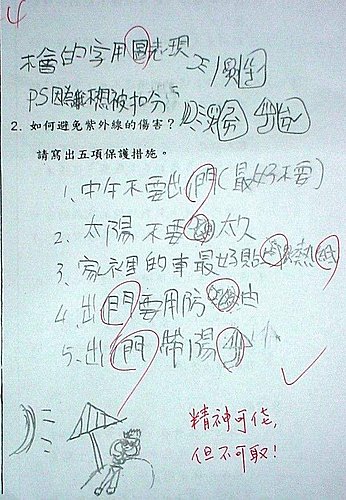 不會的字用圖表現
PS因為不想被扣分
2. 如何避免紫外線的傷害？
請寫出五項保護措施。
1. 中午不要出門(最好不要)
2. 太陽不要太久
3. 家裡的車最好貼熱紙
4. 出門要用防油
5. 出門帶陽
精神可佳,
但不可取!